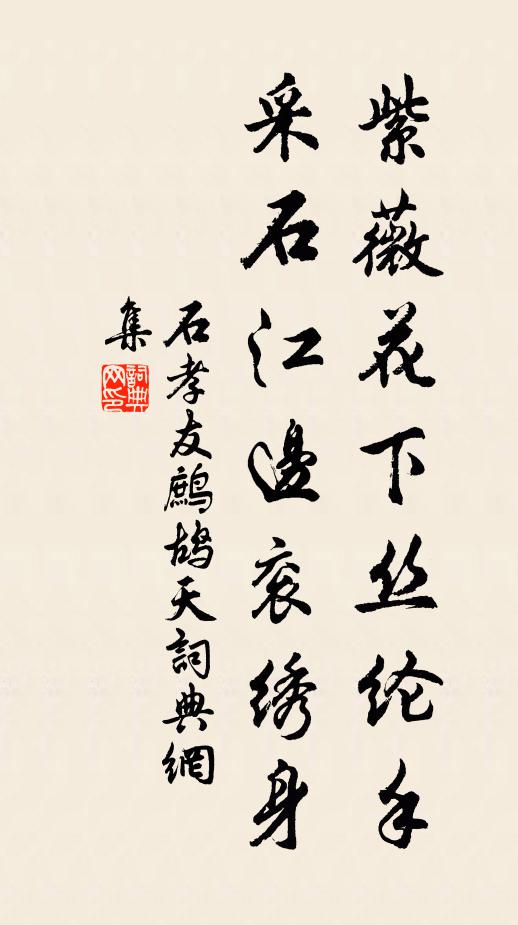 紫薇花下丝纶手
采石江邊衮绣身
石孝友鹧鸪天詞典網
集
詞典网印